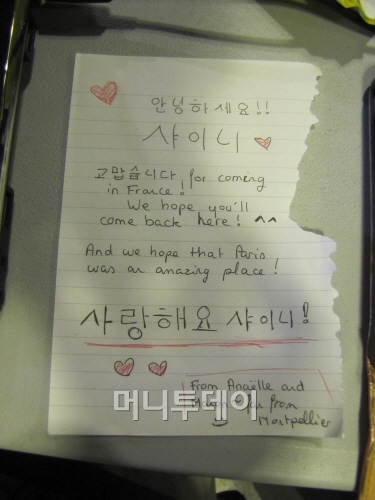 안녕하세요!!
샤이니
고맙습니다 for coming
in France!
We hope you'll
come back here! ^^
And we hope that Paris
was an amazing place!
사랑해요 샤이니!
From Anaëlle and
from
Montpellier
머니투데이